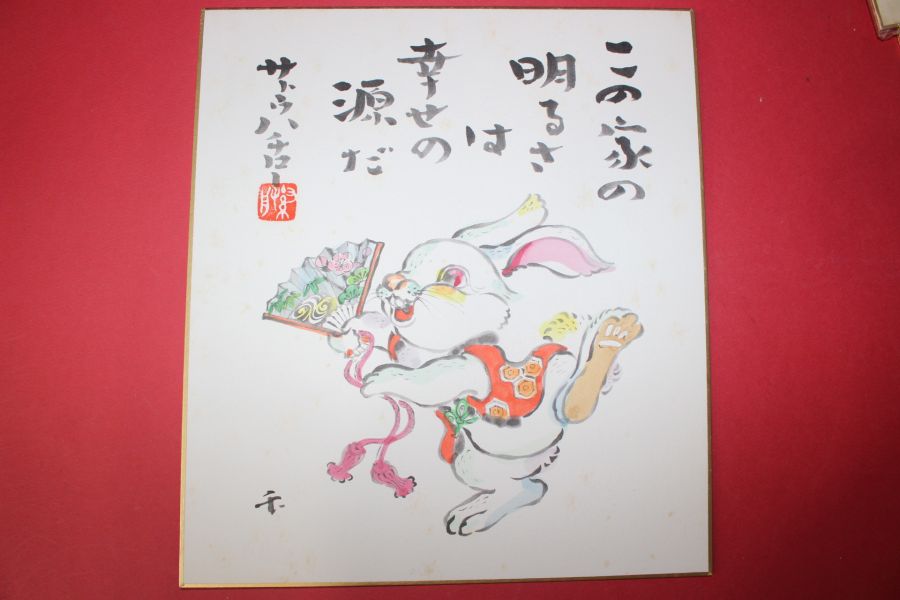 この家の
明るさ
は
幸せの
源だ
サトウハチロー